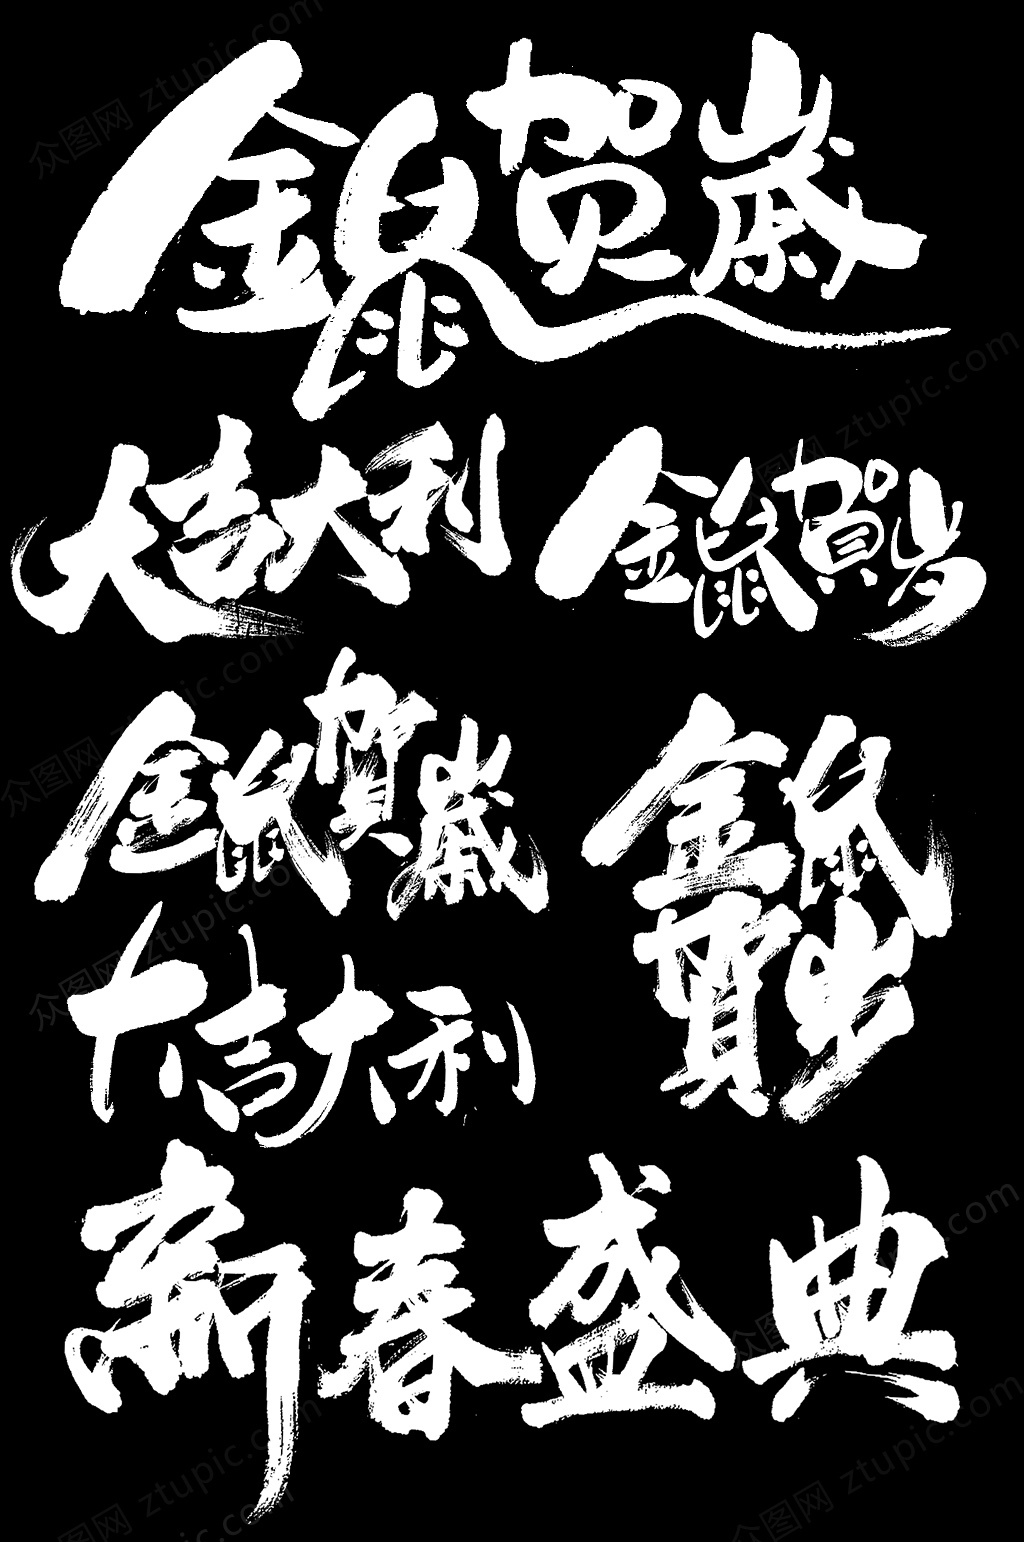 金鼠贺歲
大吉大利
金鼠賀岁
金鼠賀歲
金鼠
寳出
大吉大利
新春盛典
众图网 ztupic.com